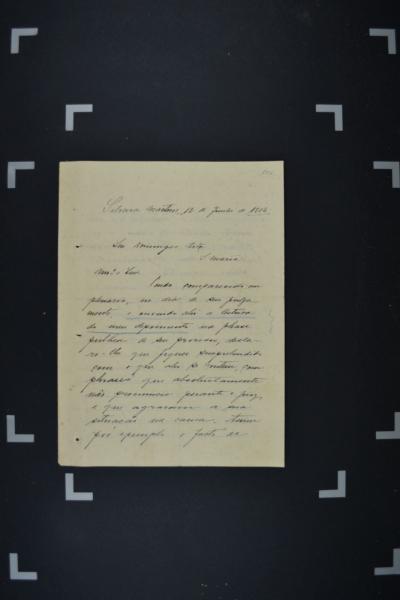 Silveira Martins, 12 de Junho de 1906
Snr Domingos
S. Maria
Am.º e Snr.
Tendo comparecido em
plenario, no dia de seu julga-
mento, e ouvindo ler a leitura
do meu depoimento na phase
publica de seu processo, decla-
ro-lhe que fiquei surprehendido
com o que ler se, com
phrases que absolutamente
não pronunciei perante o juiz,
e que agravaram a sua
situação na causa.
por exemplo o facto de